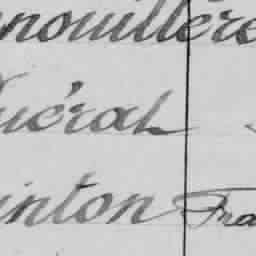 nouillère
uéral
inton Fra